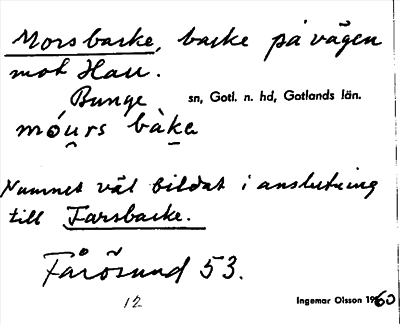 Morsbacke, backe på vägen
mot Hau.
Bunge sn, Gotl. n. hd, Gotlands län.
móu̯rs bàke̠
Namnet väl bildat i anslutning
till Farsbacke.
Fårösund 53.
12
Ingemar Olsson 1960